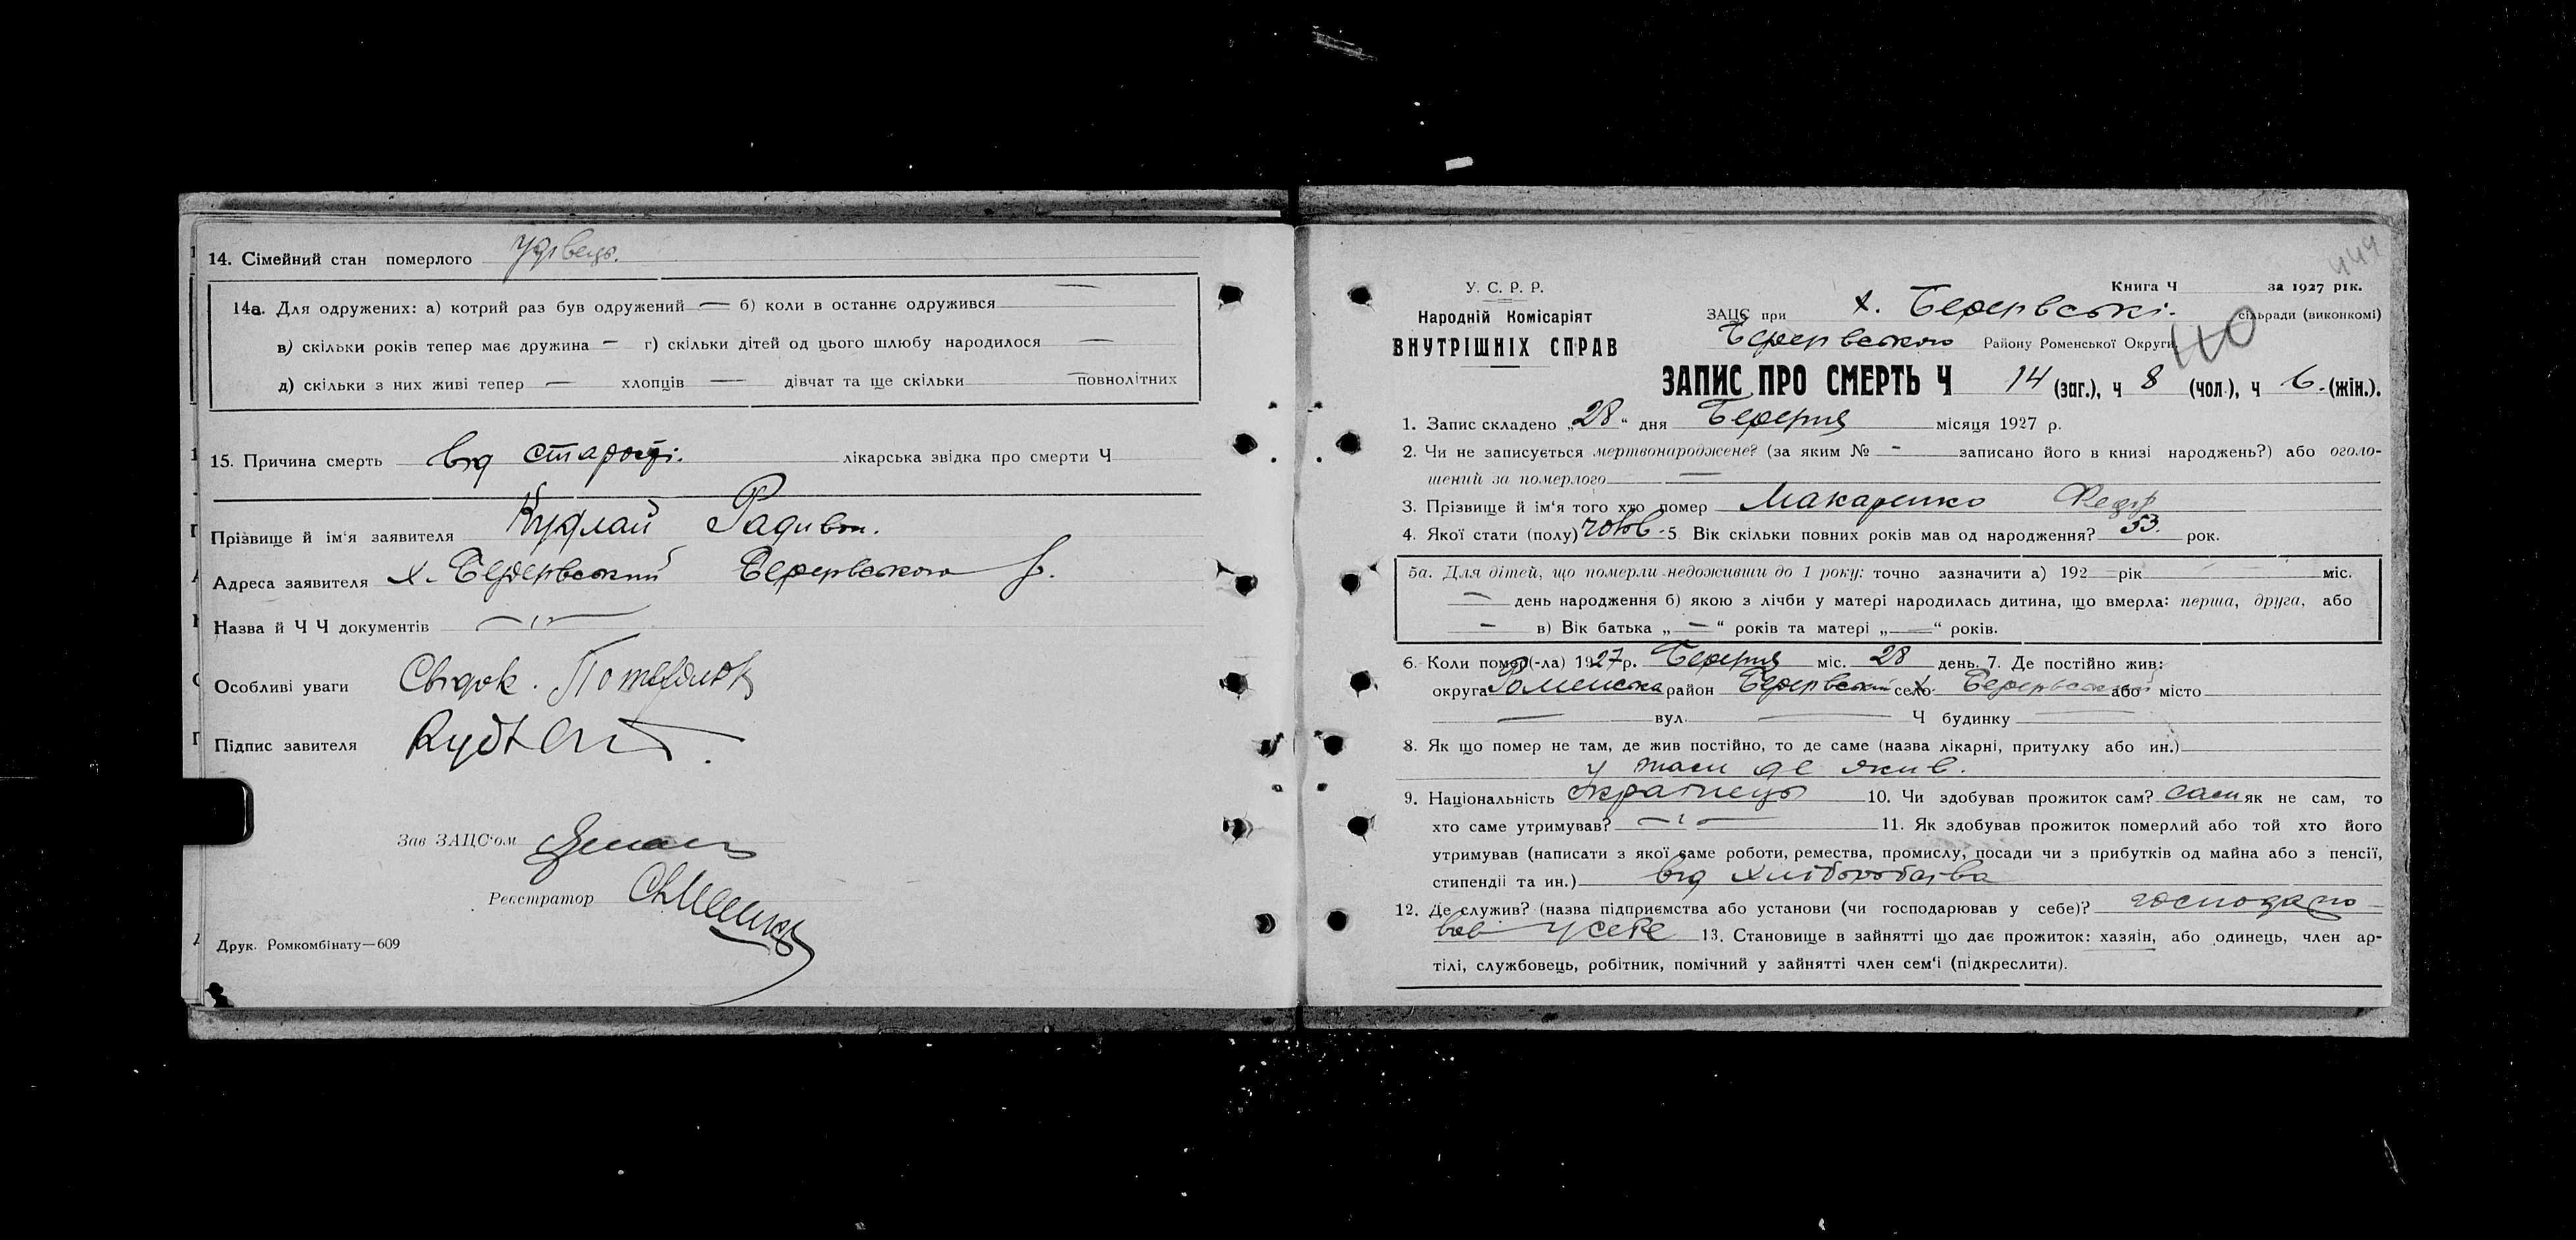 14. Сімейний стан померлого удівець.
14а. Для одружених: а) котрий раз був одружений — б) коли в останнє одружився —
в) скільки років тепер має дружина — г) скільки дітей од цього шлюбу народилося —
д) скільки з них живі тепер — хлопців — дівчат та ще скільки — повнолітних
15. Причина смерть від старості. лікарська звідка про смерти Ч
Прізвище й ім'я заявителя Радивон.
Адреса заявителя х.
Назва й Ч Ч документів
Особливі уваги Свідок.
Підпис завителя
Зав ЗАЦС'ом
Реєстратор
Друк. Ромкомбінату—609
449
У. С. Р. Р.
Народній Комісаріят
ВНУТРІШНІХ СПРАВ
Книга Ч за 1927 рік.
ЗАЦС при х. сільради (виконкомі)
Району Роменської Округи
ЗАПИС ПРО СМЕРТЬ Ч 14 (заг.), ч 8 (чол.), ч 6. (жін.).
1. Запис складено „28" дня місяця 1927 р.
2. Чи не записується мертвонароджене? (за яким № - записано його в книзі народжень?) або оголо-
шений за померлого —
3. Прізвище й ім'я того хто помер Макаренко Федір
4. Якої стати (полу) чолов. 5. Вік скільки повних років мав од народження? 53. рок.
5а. Для дітей, що померли недоживши до 1 року: точно зазначити а) 192 — рік — міс.
— день народження б) якою з лічби у матері народилась дитина, що вмерла: перша, друга, або
— в) Вік батька „—" років та матері „—" років.
6. Коли помер(-ла) 1927 р. міс. 28 день. 7. Де постійно жив:
округа Роменська район село х. або місто
— вул. — Ч будинку —
8. Як що помер не там, де жив постійно, то де саме (назва лікарні, притулку або ин.)
у там де жив.
9. Національність українець 10. Чи здобував прожиток сам? сам як не сам, то
хто саме утримував? 11. Як здобував прожиток померлий або той хто його
утримував (написати з якої саме роботи, ремества, промислу, посади чи з прибутків од майна або з пенсії,
стипендії та ин.) від хліборобства
12. Де служив? (назва підприємства або установи (чи господарював у себе)? господарю-
вав у себе 13. Становище в зайнятті що дає прожиток: хазяін, або одинець, член ар-
тілі, службовець, робітник, помічний у зайнятті член сем'і (підкреслити).